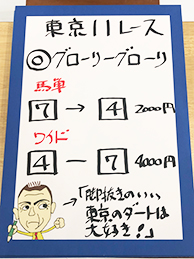 東京11レース
◎グローリーグローリ
馬単
7→4 2000円
ワイド
4-7 4000円
「脚抜きのいい
東京のダートは
大好き!」